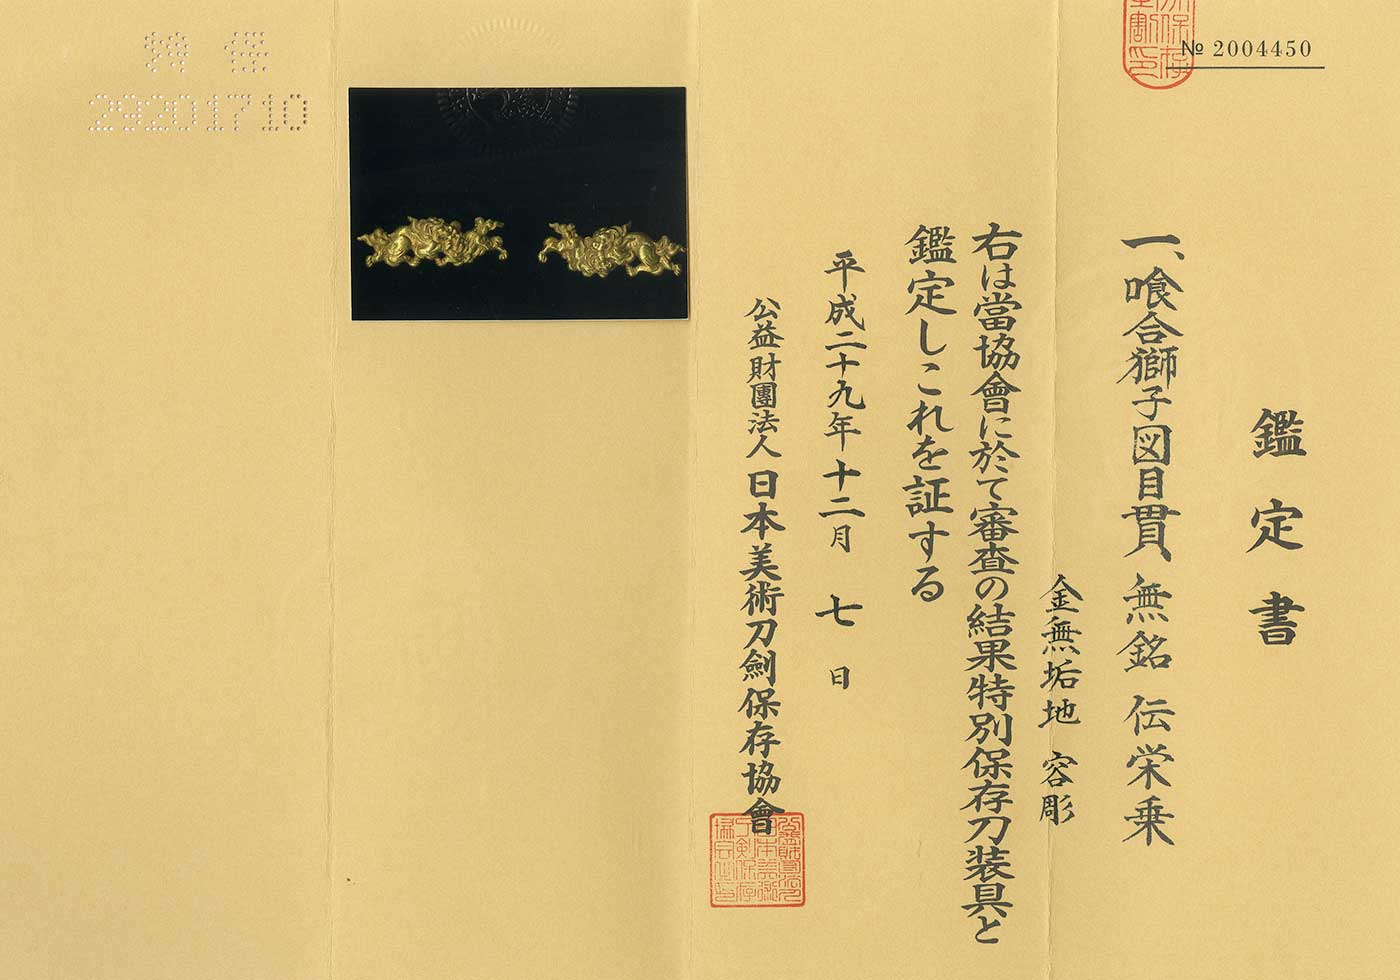 № 2004450
鑑定書
一、喰合獅子図目貫 無銘 伝栄乗
金無垢地 容彫
右は當協會に於て審査の結果特別保存刀装具と
鑑定しこれを証する
平成二十九年十二月 七 日
公益財團法人日本美術刀劍保存協會
特保
29201710